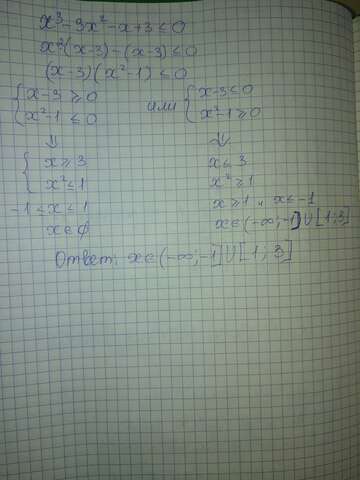 x³-3x²-x+3≤0
x²(x-3)-(x-3)≤0
(x-3)(x²-1)≤0
{x-3≥0 или {x-3≤0
x²-1≤0 x²-1≥0
⇓ ⇓
{x≥3 x≤3
x²≤1 x²≥1
-1≤x≤1 x≥1 и x≤-1
x∈∅ x∈(-∞;-1]∪[1;3]
Ответ: x∈(-∞;-1]∪[1;3]